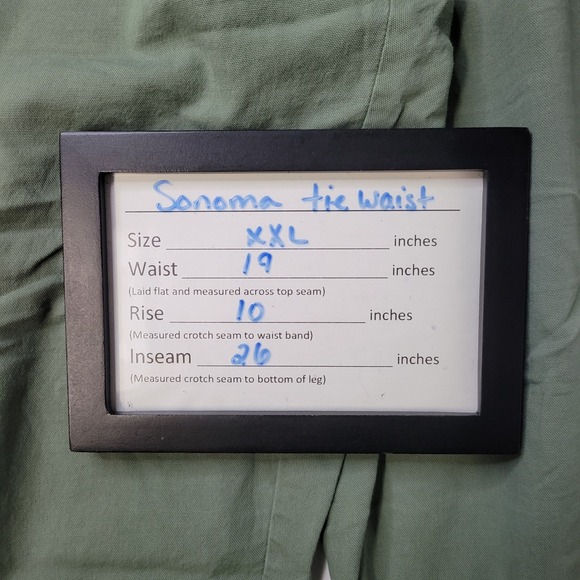 Sonoma tie waist
Size XXL inches
Waist 19 inches
(Laid flat and measured across top seam)
Rise 10 inches
(Measured crotch seam to waist band)
Inseam 26 inches
(Measured crotch seam to bottom of leg)